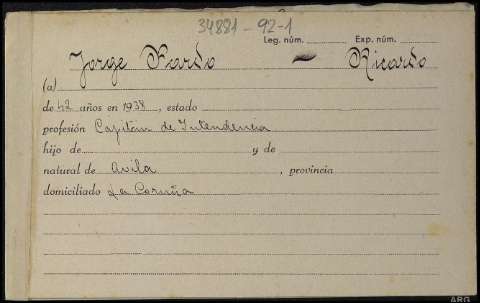 34881-92-1
Leg. núm. Exp. núm.
Jorge Pardo - Ricardo
(a)
de 42 años en 1938, estado
profesión Capitán de Intendencia
hijo de y de
natural de Avila, provincia
domiciliado La Coruña
ARG